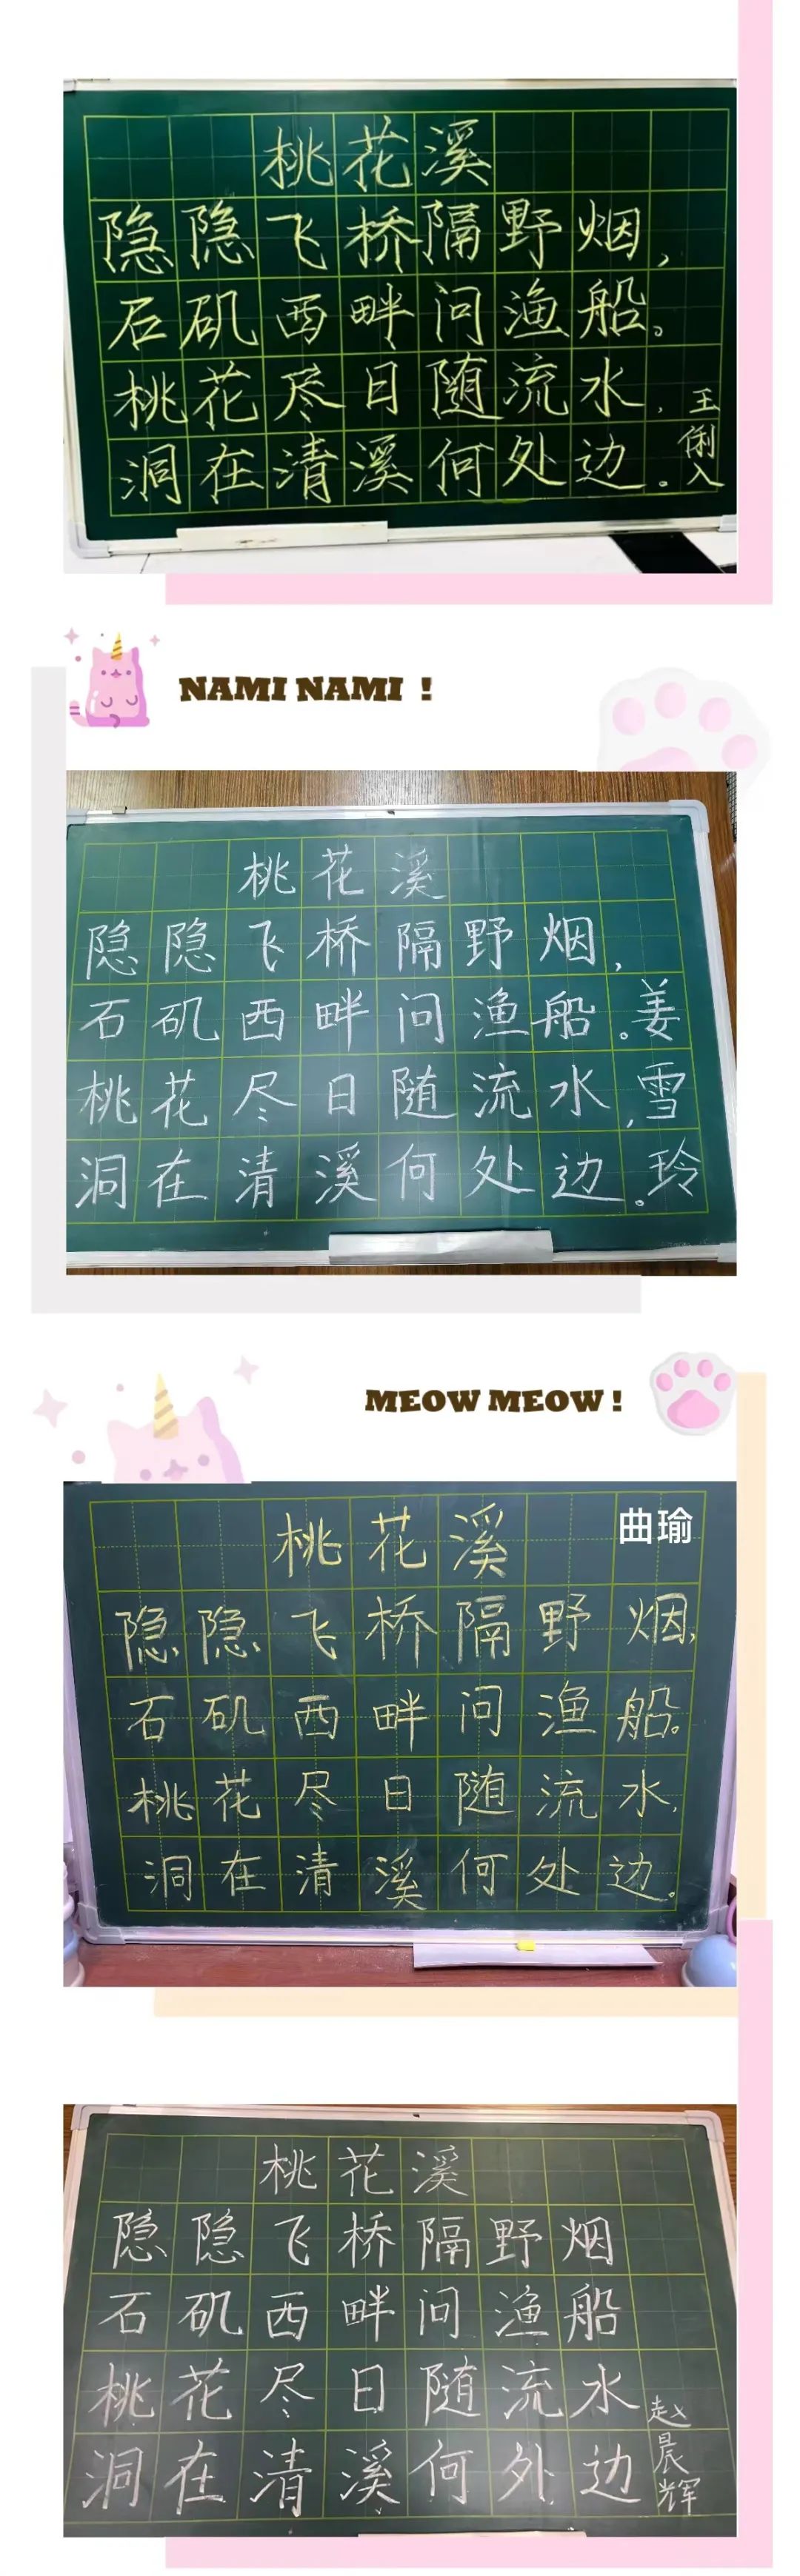 桃花溪
隐隐飞桥隔野烟，
石矶西畔问渔船。
桃花尽日随流水，
洞在清溪何处边。
王俐入
NAMI NAMI !
桃花溪
隐隐飞桥隔野烟，
石矶西畔问渔船。
桃花尽日随流水，
洞在清溪何处边。
姜雪玲
MEOW MEOW !
曲瑜
桃花溪
隐隐飞桥隔野烟，
石矶西畔问渔船。
桃花尽日随流水，
洞在清溪何处边。
桃花溪
隐隐飞桥隔野烟
石矶西畔问渔船
桃花尽日随流水
洞在清溪何处边
赵晨辉